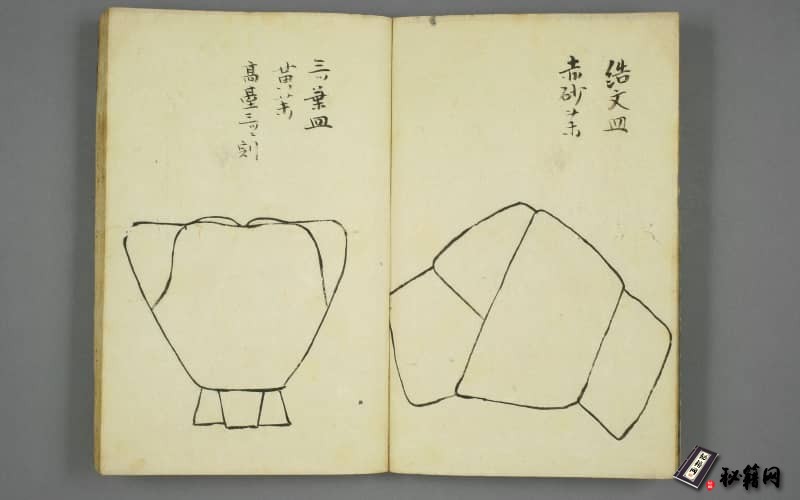 結文皿
赤砂薬
三ツ葉皿
黄薬
高臺三ツニ刻
秘籍网